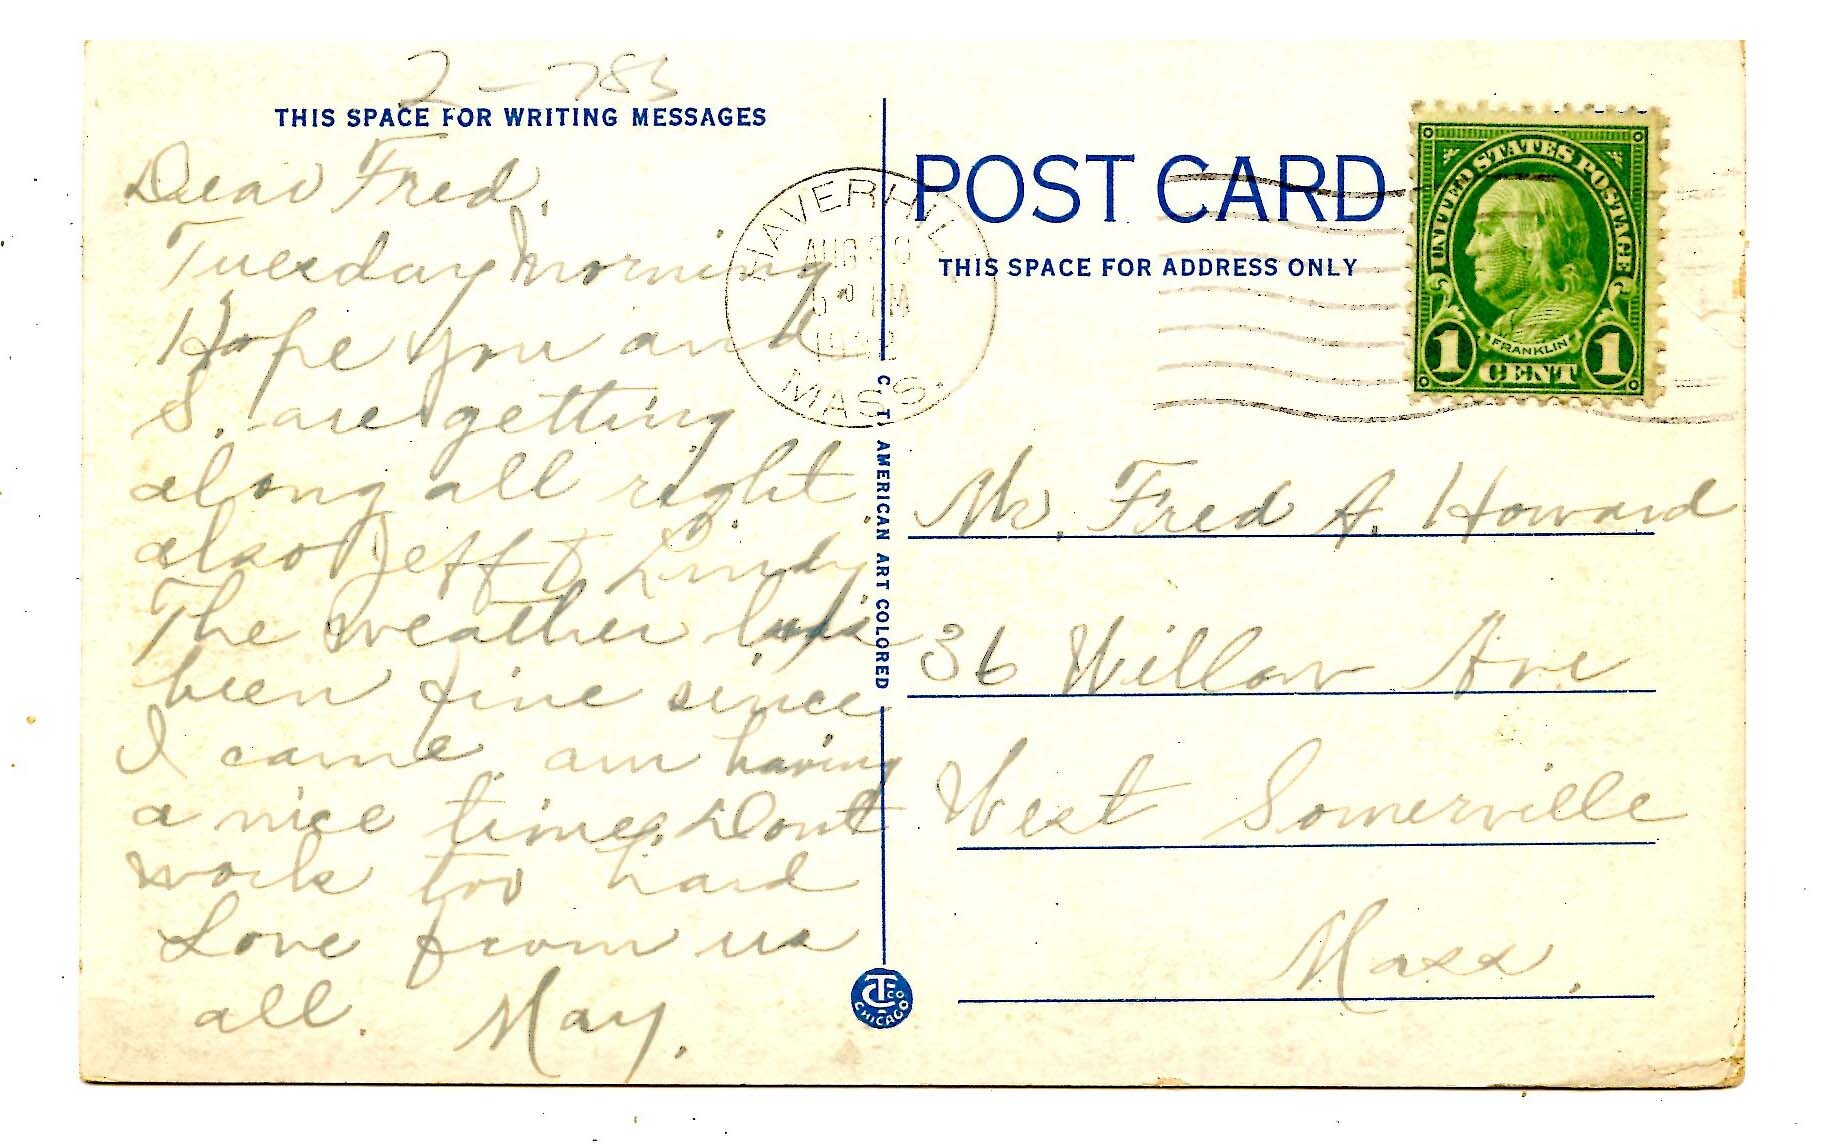 2-783
THIS SPACE FOR WRITING MESSAGES
Dear Fred.
Tuesday Morning
Hope you and
S. are getting
along all right
also Jeff & Lindy.
The weather has
been fine since
I came am having
a nice time. Dont
work too hard
Love from us
all. May.
HAVERHILL
AUG 30
PM
MASS.
C. T. AMERICAN ART COLORED
CT CO
CHICAGO
POST CARD
THIS SPACE FOR ADDRESS ONLY
UNITED STATES POSTAGE
FRANKLIN
1 CENT 1
Mr. Fred A. Howard
36 Willow Ave
West Somerville
Mass.